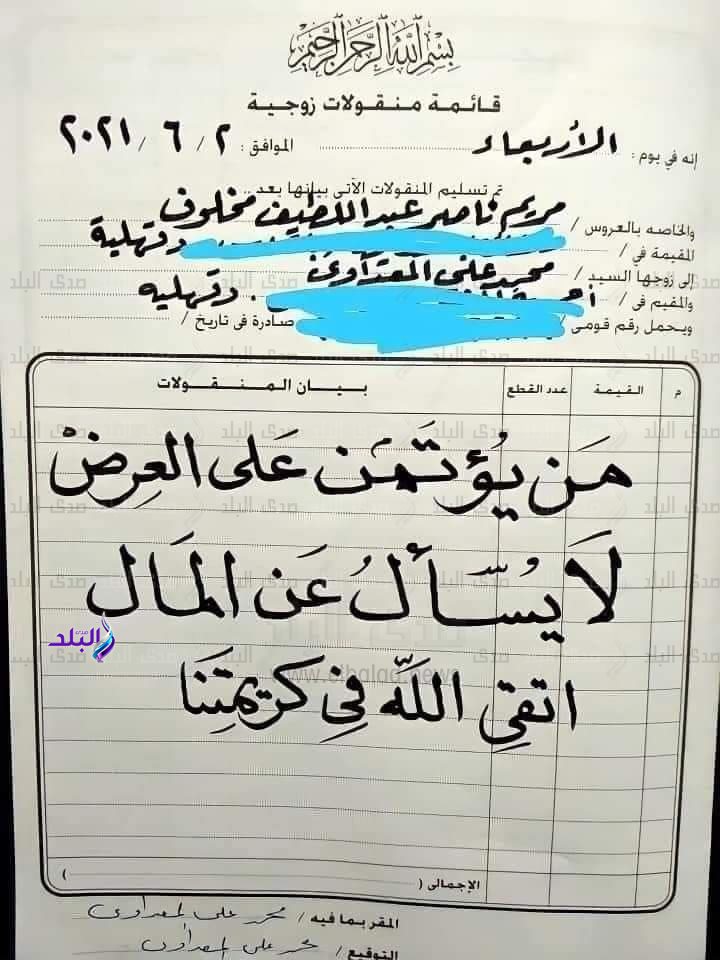 بسم الله الرحمن الرحيم
قائمة منقولات زوجية
إنه في يوم: الأربعاء الموافق: ٢ / ٦ / ٢٠٢١
تم تسليم المنقولات الآتى بيانها بعد ..
والخاصه بالعروس / مريم ناصر عبد اللطيف مخلوف
المقيمة في / دقهلية
إلى زوجها السيد / محمد على المعداوى
والمقيم فى / دقهليه
ويحمل رقم قومى / صادرة فى تاريخ /
م القيمة عدد القطع بيان المنقولات
مَن يُؤتَمَن عَلى العِرضْ
لَا يُسّأَلُ عَن المَال
اتقِي اللَّه فِي كريمتِنَا
صدى البلد
www.elbalad.news
الإجمالى ( )
المقر بما فيه / محمد على المعداوى
التوقيع / محمد على المعداوى